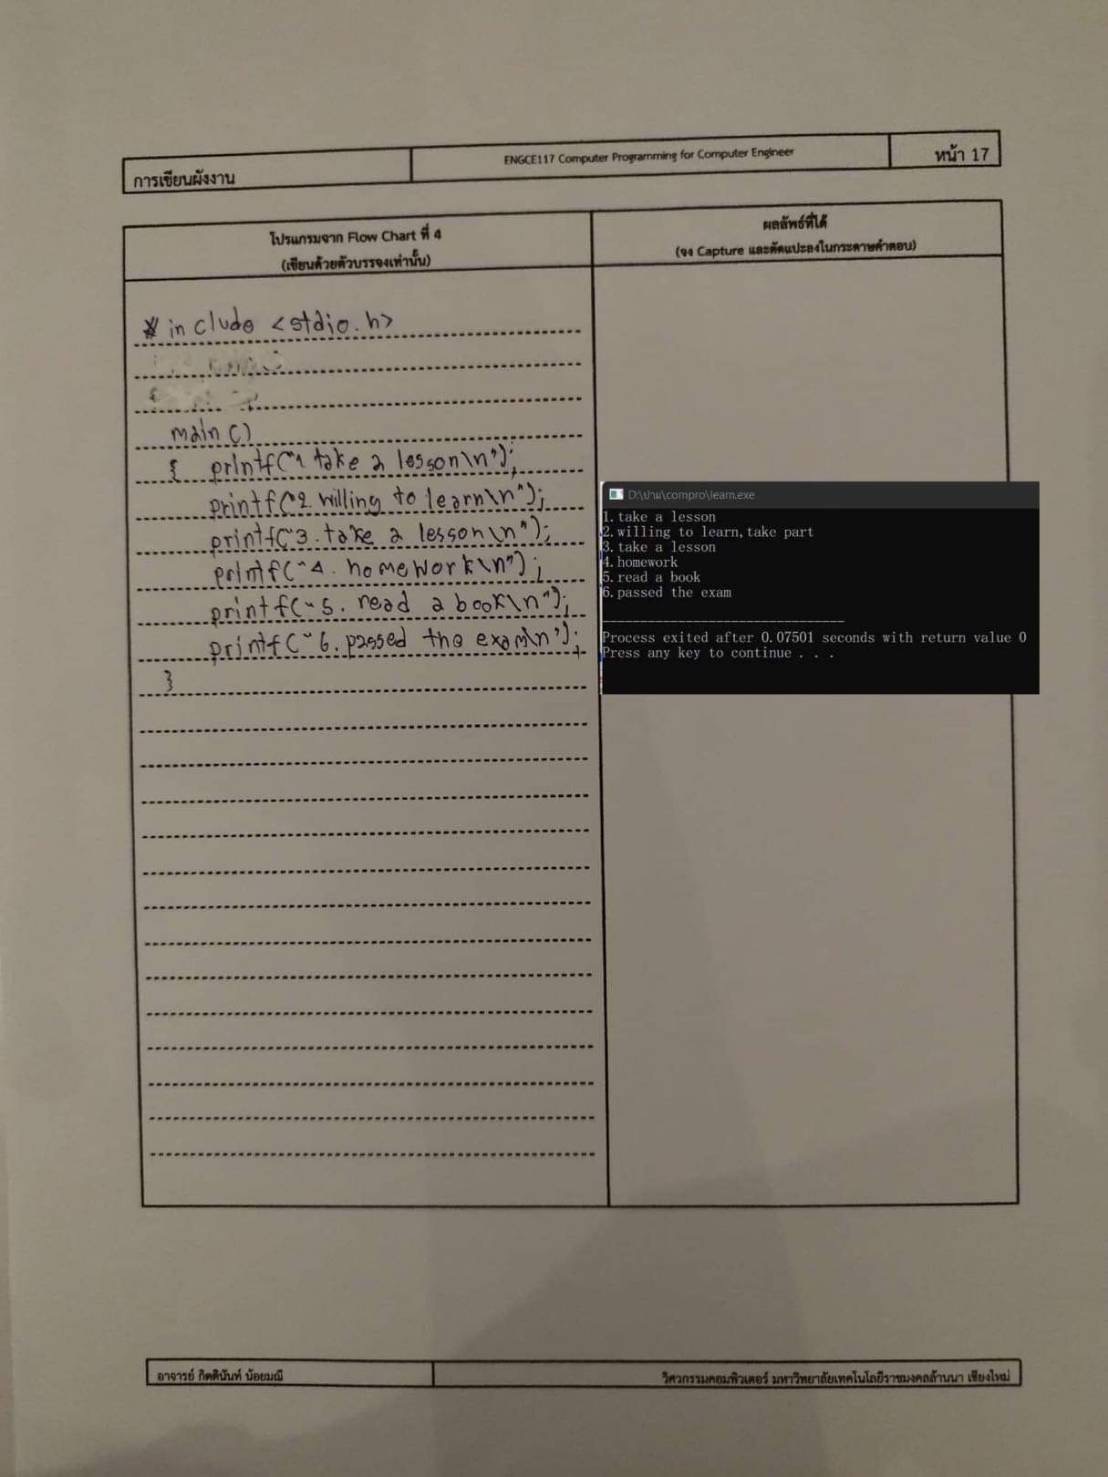 การเขียนผังงาน
ENGCE117 Computer Programming for Computer Engineer
หน้า 17
โปรแกรมจาก Flow Chart ที่ 4
(เขียนด้วยตัวบรรจงเท่านั้น)
ผลลัพธ์ที่ได้
(จง Capture และตัดแปะลงในกระดาษคำตอบ)
# include <stdio.h>
main()
{ printf("1 take a lesson\n");
printf("2 willing to learn\n");
printf("3. take a lesson\n");
printf("4. homework\n");
printf("5. read a book\n");
printf("6. passed the exam\n");
}
D:\ปาม\compro\learn.exe
1.take a lesson
2.willing to learn,take part
3.take a lesson
4.homework
5.read a book
6.passed the exam
--------------------------------
Process exited after 0.07501 seconds with return value 0
Press any key to continue . . .
อาจารย์ กิตตินันท์ น้อยมณี
วิศวกรรมคอมพิวเตอร์ มหาวิทยาลัยเทคโนโลยีราชมงคลล้านนา เชียงใหม่